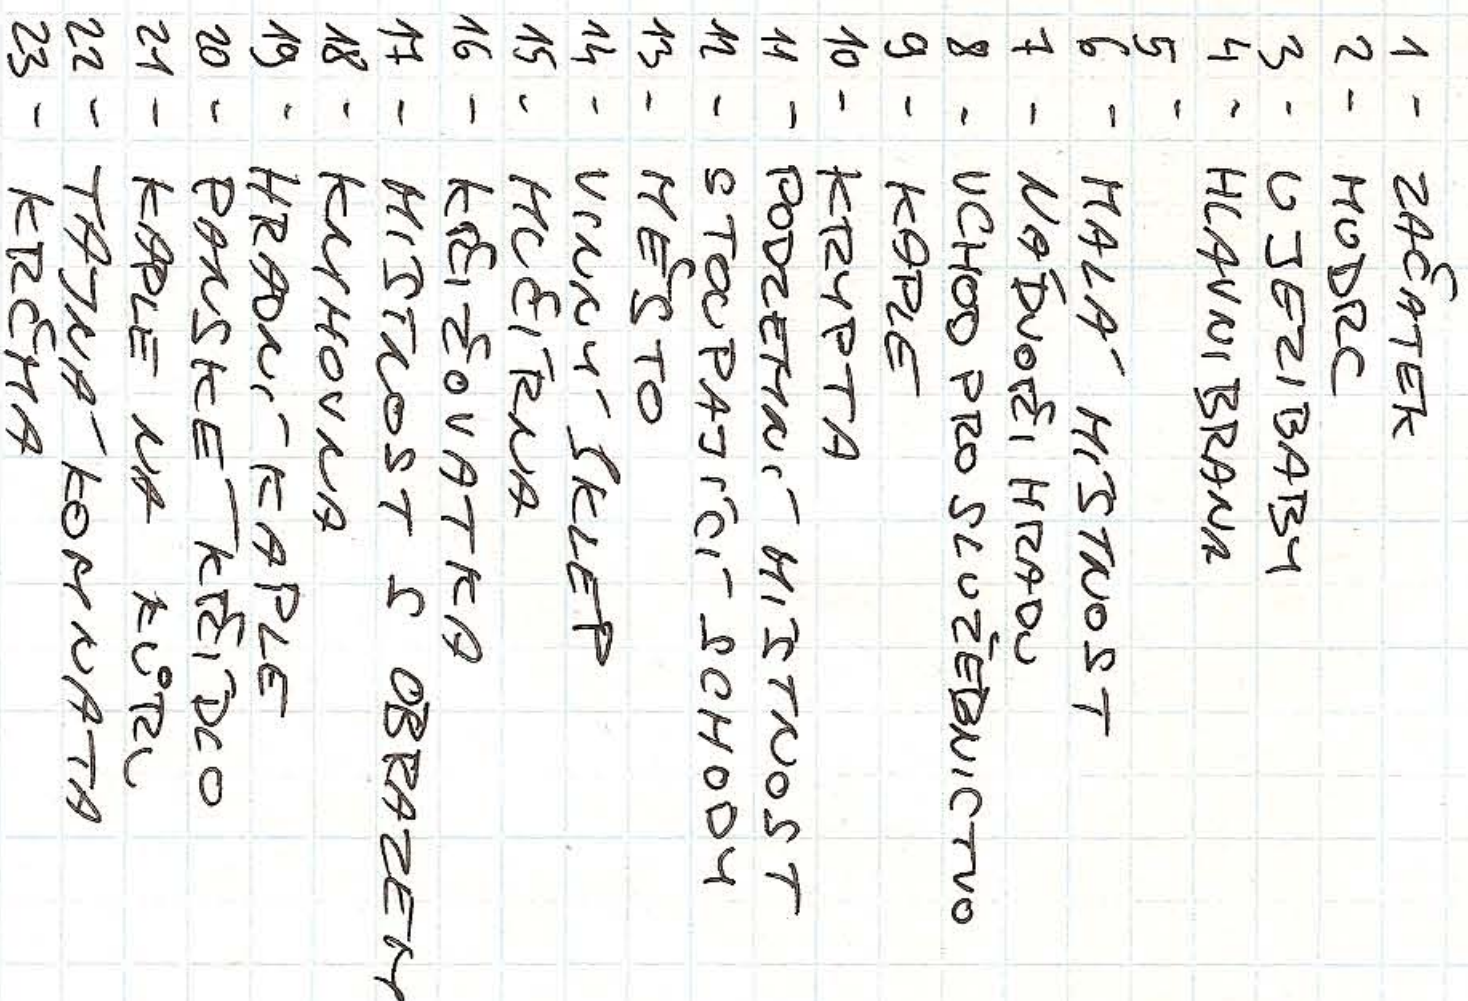 1 - ZAČATEK
2 - MUDRC
3 - U JEZIBABY
4 - HLAVNI BRANA
5 -
6 - MALÁ MISTNOST
7 - NÁDVOŘI HRADU
8 - VCHOD PRO SLUŽEBNICTVO
9 - KAPLE
10 - KRYPTA
11 - PODZEMNÍ MISTNOST
12 - STOUPAJÍCÍ SCHODY
13 - MĚSTO
14 - VINNÝ SKLEP
15 - MUČÍRNA
16 - KŘIŽOVATKA
17 - MISTNOST S OBRAZEM
18 - KNIHOVNA
19 - HRADNÍ KAPLE
20 - PANSKÉ KŘÍDLO
21 - KAPLE NA KŮRU
22 - TAJNÁ KOMNATA
23 - KRČMA